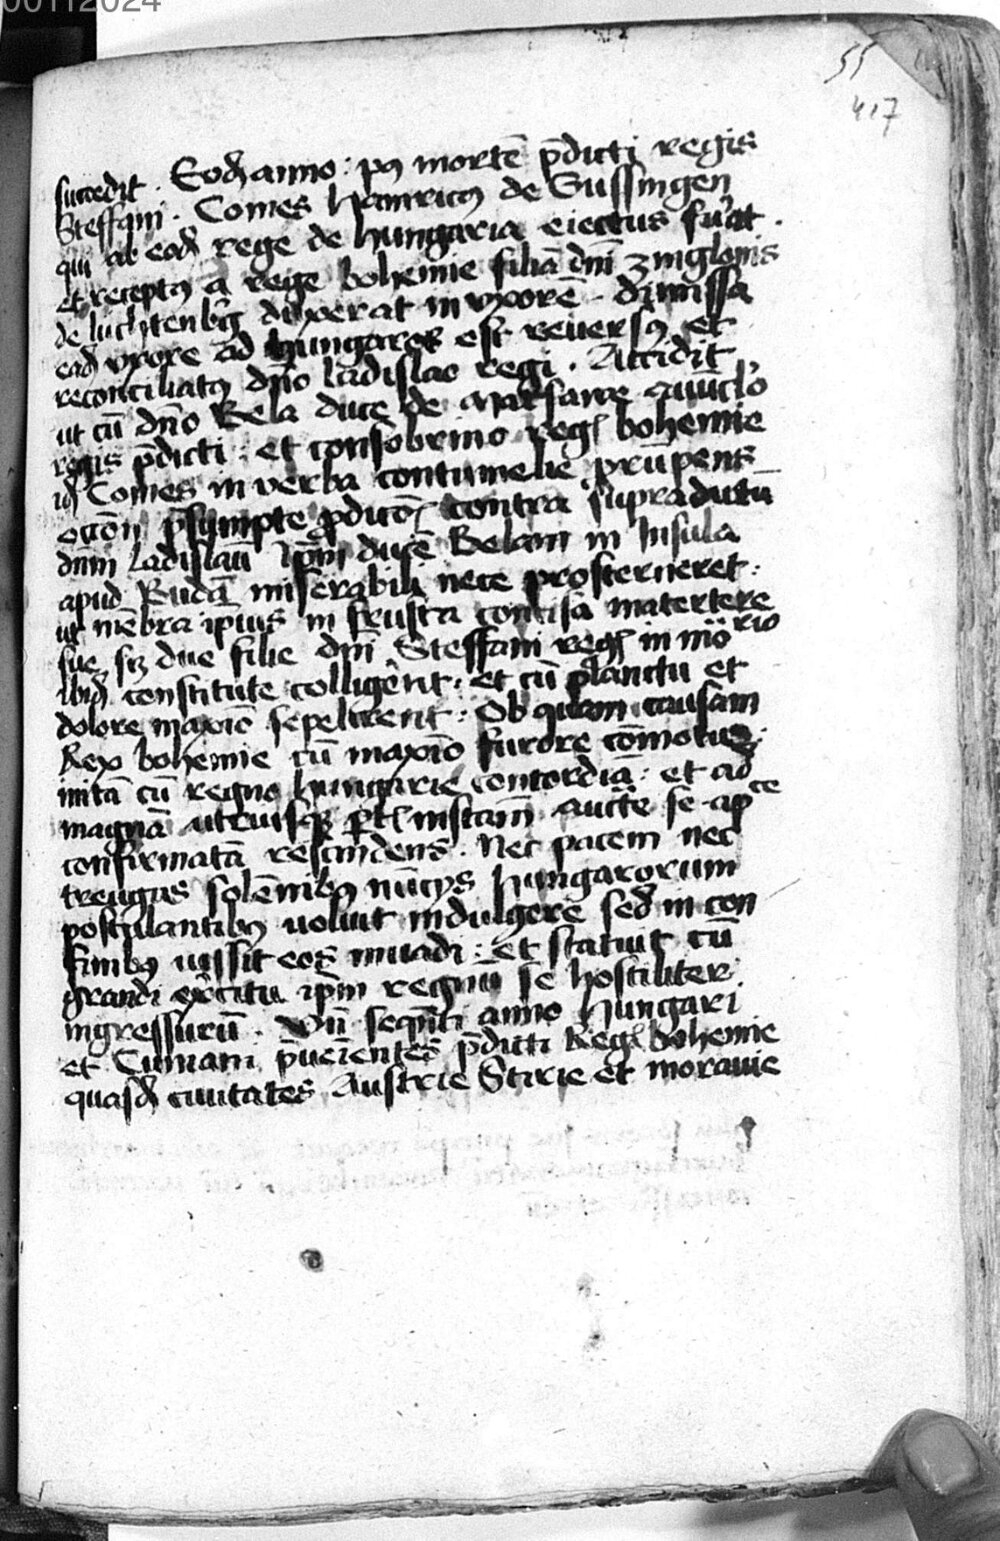 00112024
55
417
succedit . Eodẽ anno : pꝰ mortẽ p̄dicti regis
Steffani . Comes Hainricꝰ de Gussingen
qui ab eodẽ rege de Hungaria eiectus fu'at .
Et receptꝰ a rege bohemie filiã dñi zmiglonis
de luchtenb'g duxerat in vxorẽ . dimissa
eadẽ vxore ad hungaros est reuersꝰ et
reconciliatꝰ dño ladislao regi . Accidit
ut cũ dño Bela duce de auũclo
regis p̄dicti : et consobrino reg bohemie
idẽ Comes in verba contumelie prũpens
occõn p̄sumpte contra supradictũ
dñm ladislau ip̄m ducẽ Belam in Insula
apud Budã miserabili nece prosterneret :
ut mẽbra ipius in frusta concisa matertere
sue scz due filie dñi Steffani reg in mõrio
ibidẽ constitute colligẽrnt : et cũ planctu et
dolore maxiõ sepelirent : Ob quam causam
Rex bohemie cũ maxiõ furore cõmotus :
initã cũ regno hungarie concordiã : et ad
magnã utriusqꝫ ꝑt instanĩ aucte se ap ce
confirmatã rescindens . Nec pacem nec
treugas solẽnibꝰ nũcys hungarorum
postulantibꝰ uoluit indulgere sed in con
finibꝰ iussit eos inuadi : Et statuit cũ
grandi ex'citu ip̄m regnũ se hostiliter
ingressurũ . Vñ seqñti anno Hungari
et Cumani p̄ueientes p̄dicti Reg bohemie
quasdã ciuitates Austrie Stirie et morauie